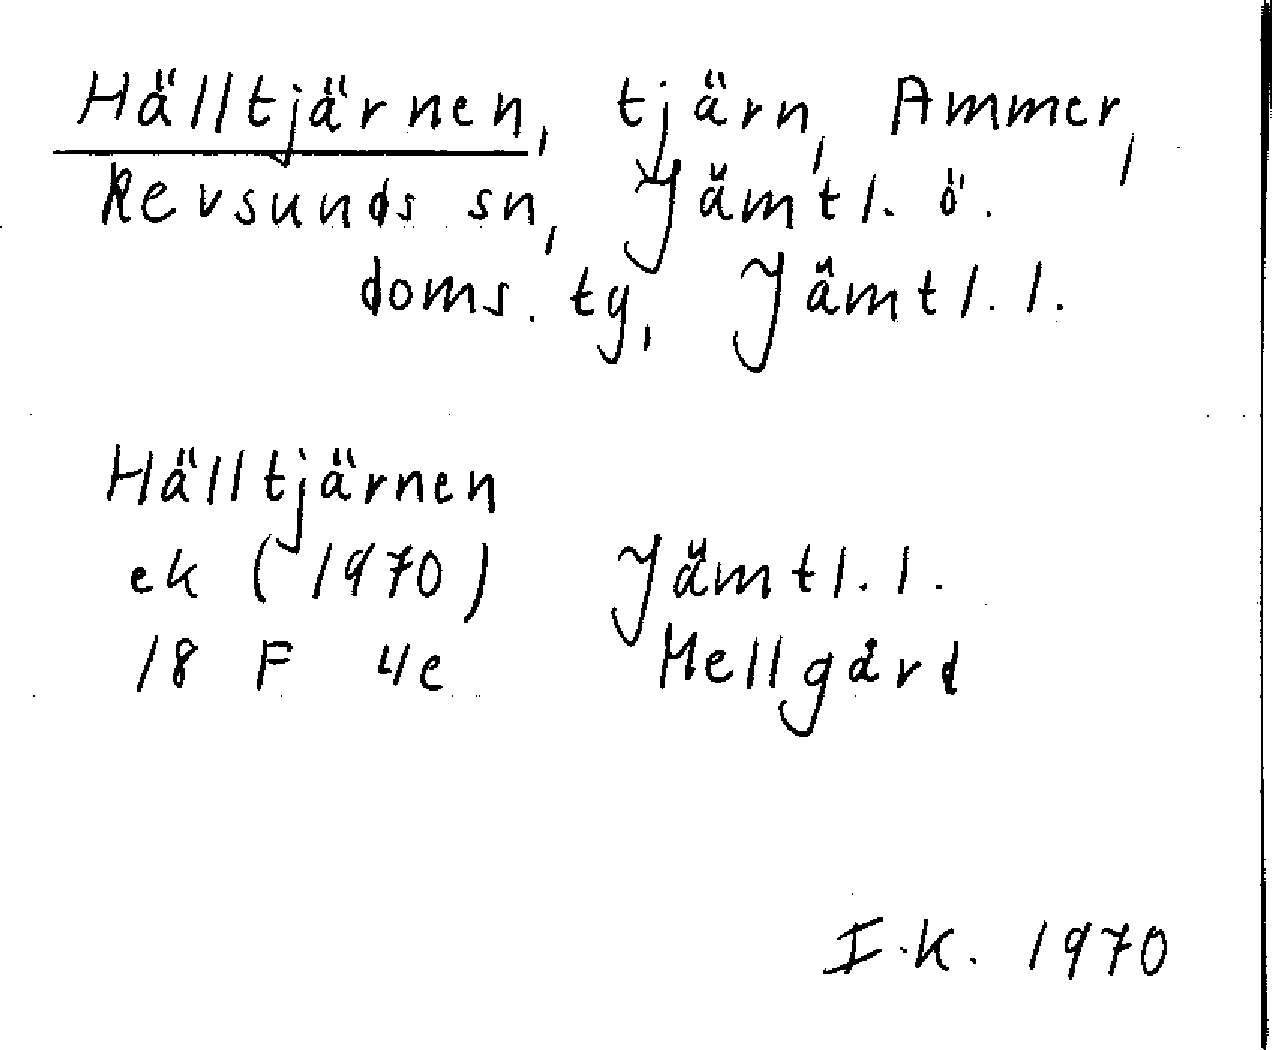 Hälltjärnen, tjärn, Ammer,
Revsunds sn, Jämtl. ö.
doms. tg, Jämtl. l.
Hälltjärnen
ek (1970) Jämtl. l.
18 F 4e Mellgård
I.K. 1970